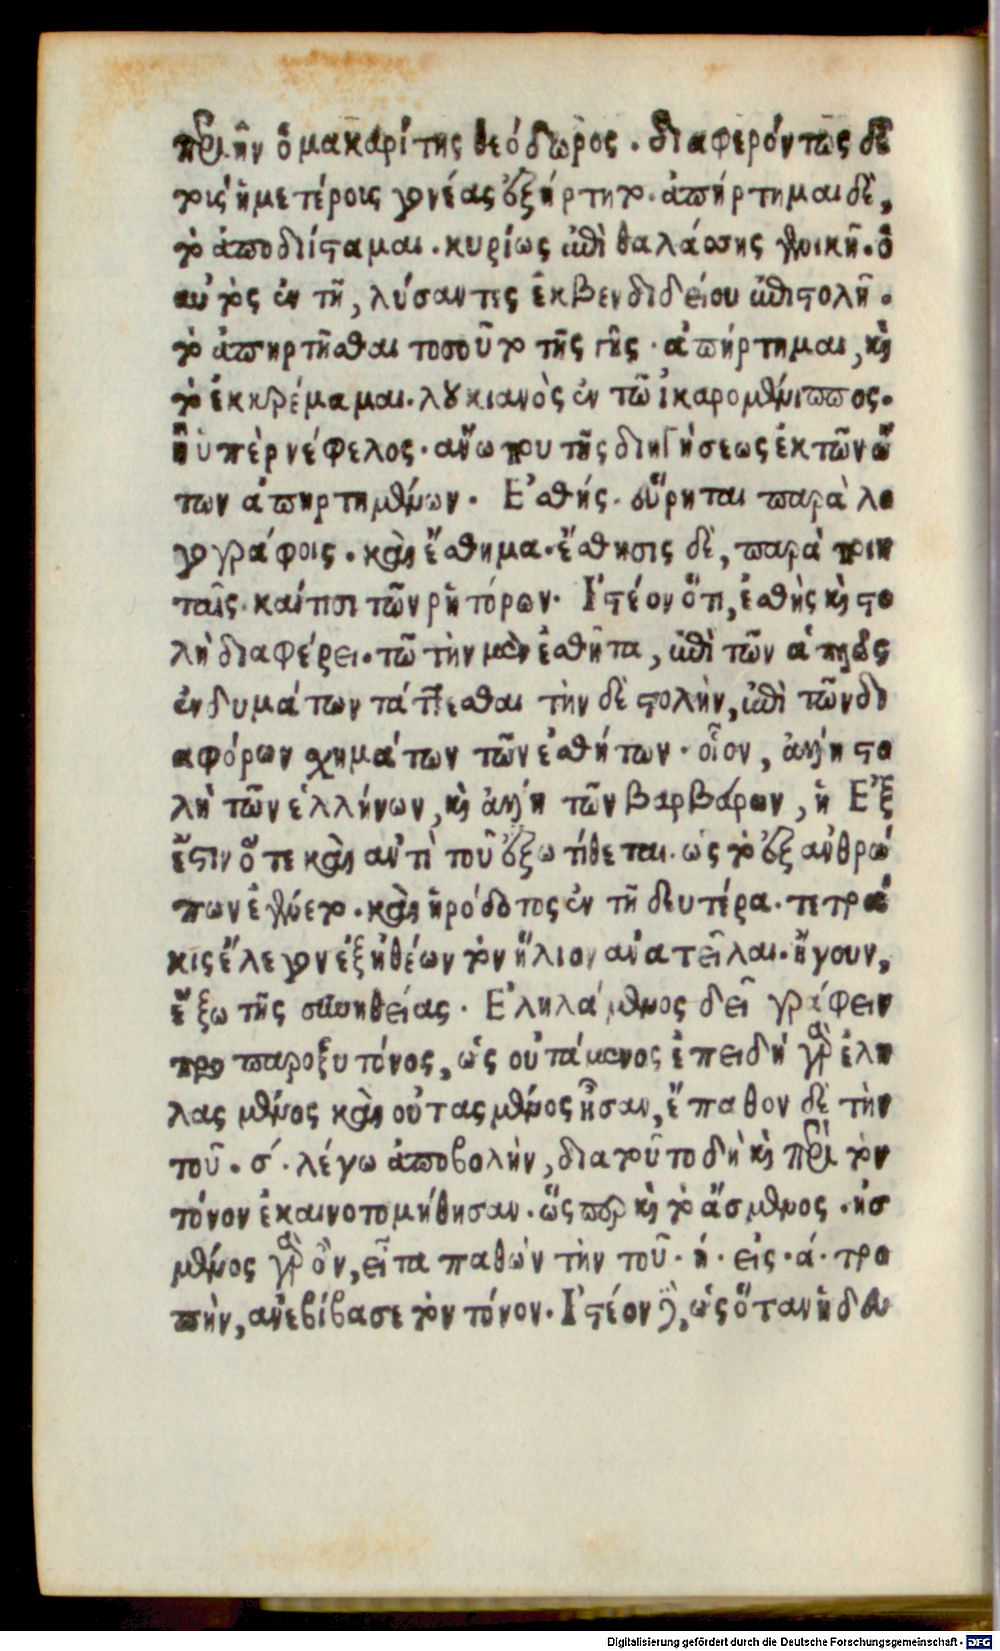 περιῆν ὁ μακαρίτης θεόδωρος. διαφερόντως δὲ
τοῖς ἡμετέροις γονέας ἐξήρτητο. ἀπήρτημαι δὲ,
τὸ ἀποδιίσταμαι. κυρίως ἐπὶ θαλάσσης γενικῇ. ὁ
αὐτὸς ἐν τῇ, λύσαντες ἐκ βενδιδείου ἐπιστολῇ.
τὸ ἀπηρτῆσθαι τοσοῦτο τῆς γῆς. ἀπήρτημαι, καὶ
τὸ ἐκκρέμαμαι. λουκιανὸς ἐν τῷ ἰκαρομένιππος.
ἢ ὑπὲρ νέφελος. ἄνω που τῆς διηγήσεως ἐκ τῶν ὤ
των ἀπηρτημένων. Ἐσθής. εὕρηται παρὰ λο
γογράφοις. καὶ ἔσθημα. ἔσθησις δὲ, παρὰ ποιη
ταῖς. καί τισι τῶν ῥητόρων. Ἰστέον ὅτι, ἐσθὴς καὶ στο
λὴ διαφέρει. τῷ τὴν μὲν ἐσθῆτα, ἐπὶ τῶν ἁπλῶς
ἐνδυμάτων τάττεσθαι τὴν δὲ στολὴν, ἐπὶ τῶν δι
αφόρων σχημάτων τῶν ἐσθήτων. οἷον, ἄλλη στο
λὴ τῶν ἑλλήνων, καὶ ἄλλη τῶν βαρβάρων, ἢ Ἐξ
ἔστιν ὅτε καὶ ἀντὶ τοῦ ἔξω τίθεται. ὡς τὸ ἐξ ἀνθρώ
πων ἐγένετο. καὶ ἡρόδοτος ἐν τῇ δευτέρα. τετρά
κις ἔλεγον ἐξ ἠθέων τὸν ἥλιον ἀνατεῖλαι. ἤγουν,
ἔξω τῆς συνηθείας. Ἐληλάμενος δεῖ γράφειν
προπαροξυτόνος, ὡς οὐτάμενος ἐπειδὴ γὰρ ἐλη
λασμένος καὶ οὐτασμένος ἦσαν, ἔπαθον δὲ τὴν
τοῦ. σ. λέγω ἀποβολὴν, διατοῦτο δὴ καὶ περὶ τὸν
τόνον ἐκαινοτομήθησαν. ὥσπερ καὶ τὸ ἄσμενος. ἡσ
μένος γὰρ ὂν, εἶτα παθὼν τὴν τοῦ. ή. εἰς. ά. τρο
πὴν, ἀνεβίβασε τὸν τόνον. Ἰστέον δὲ, ὡς ὅταν ἡ δευ
Digitalisierung gefördert durch die Deutsche Forschungsgemeinschaft - DFG